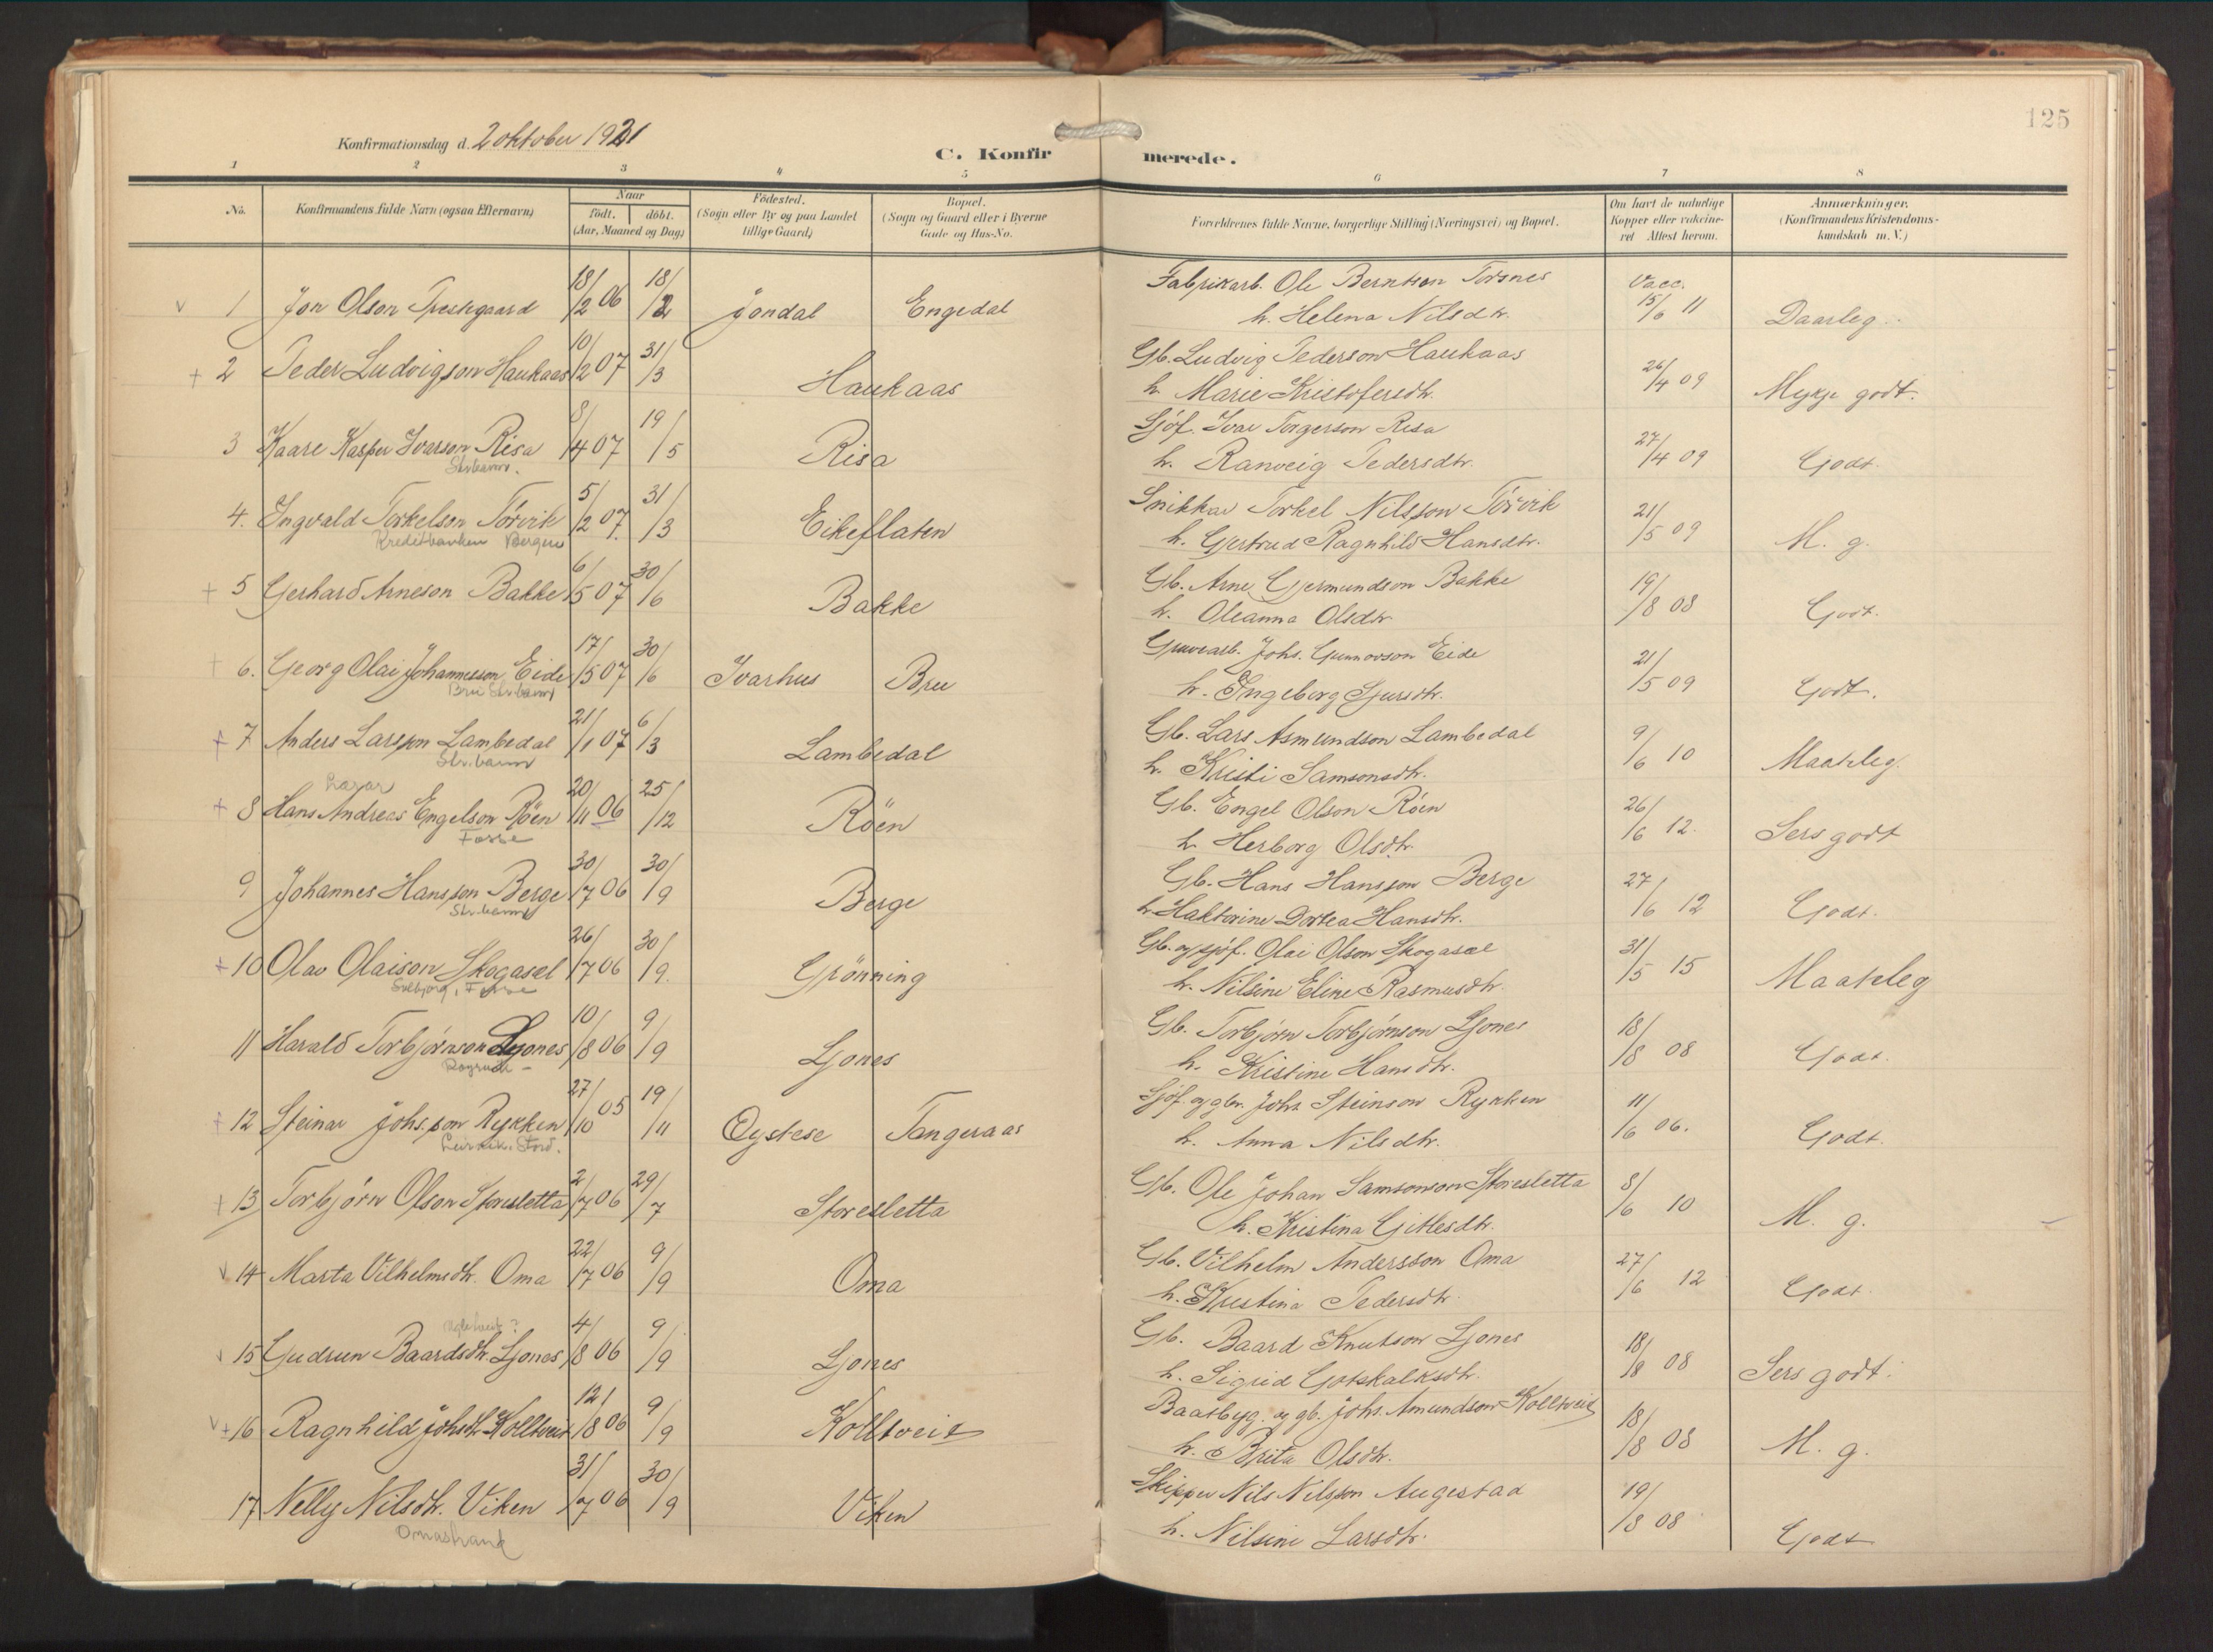 125
Konfirmationsdag d. 2 oktober 1921
C. Konfirmerede.
1 2 3 4 5 6 7 8
No. Konfirmandens fulde Navn (ogsaa Efternavn) Naar født. døbt. (Aar, Maaned og Dag) Fødested. (Sogn eller By og paa Landet tillige Gaard) Bopæl. (Sogn og Gaard eller i Byerne Gade og Hus-No. Forældrenes fulde Navne, borgerlige Stilling (Næringsvei) og Bopæl. Om havt de naturlige Kopper eller vakcineret Attest herom. Anmærkninger. (Konfirmandens Kristendomskundskab m. V.)
1 Jon Olson 18/2 06 18/2 Jondal Engedal Fabrikarb. Ole Berntson Torsnes Vacc. 15/6 11 Daarleg.
h. Helena Nilsdtr.
2 Peder Ludvigson Haukaas 10/2 07 31/3 Haukaas Gb. Ludvig Pederson Haukaas 26/4 09 Mykje godt.
h. Marie Kristofersdtr.
3 Kaare Kasper Ivarson Risa 8/4 07 19/5 Risa Sjóf. Ivar Torgerson Risa 27/4 09 Godt.
Str.barm. h. Ranveig Pedersdtr.
4. Ingvald Torkelson Tórvik 5/2 07. 31/3 Eikeflaten Snikkar Torkel Nilsson Tórvik 21/5 09 M. g.
Kreditbanken Bergen h. Gjertrud Ragnhild Hansdtr.
5 Gerhard Arneson Bakke 6/5 07 30/6 Bakke Gb. Arne Gjermundson Bakke 19/8 08 Godt.
h. Oleanna Olsdtr
6. Georg Olai Johannesson Eide 17/5 07 30/6 Ivarhus Bru Gruvearb. Johs. Gunnarson Eide 21/5 09 Godt.
Bru Str.barm h. Ingeborg Sjursdtr.
7 Anders Larsson Lambedal 21/1 07 6/3 Lambedal Gb. Lars Asmundson Lambedal 9/6 10 Maateleg.
Str.barm h. Kristi Samsonsdtr.
8 Hans Andreas Engelson Röen 20/11 06 25/12 Röen Gb. Engel Olson Röen 26/6 12. Sers godt
Fosse h. Herborg Olsdtr.
9 Johannes Hansson Berge 30/7 06 30/9 Berge Gb. Hans Hansson Berge 27/6 12 Godt.
Str.barm h. Haktorine Dortea Hansdtr.
10 Olav Olaison Skogasæl 26/7 06 30/9. Grönning Gb. og sjóf. Olai Olson Skogasæl 31/5 15 Maateleg
Solbjorg, Fosse h. Nilsine Eline Rasmusdtr.
11 Harald Torbjórnson Ljones 10/8 06 9/9 Ljones Gb. Torbjórn Torbjórnson Ljones 18/8 08 Godt.
h. Kristine Hansdtr.
12 Steinar Johs.son Rykken 27/10 05 19/11 Oystese Tangeraas Sjóf. og gbr. Johs Steinson Rykken 11/6 06. Godt.
Leirvik. Stord. h. Anna Nilsdtr.
13 Torbjórn Olson Storesletta 2/7 06 29/7 Storesletta Gb. Ole Johan Samsonson Storesletta 8/6 10 M. g.
h. Kristina Gitlesdtr.
14 Marta Vilhelmsdtr. Oma 22/7 06 9/9 Oma Gb. Vilhelm Andersson Oma 27/6 12 Godt
h. Kristina Pedersdtr.
15 Gudrun Baardsdtr. Ljones 4/8 06 9/9 Ljones Gb. Baard Knutson Ljones 18/8 08 Sers godt.
h. Sigrid Gotskalksdtr.
16 Ragnhild Johsdtr. Kolltveit 12/8 06 9/9 Kolltveit Baatbyg. og gb. Johs. Amundson Kolltveit 18/8 08 M. g.
h. Brita Olsdtr.
17 Nelly Nilsdtr. Viken 31/7 06 30/9 Viken Skipper Nils Nilsson Augestad 19/8 08 Godt
Omastrand h. Nilsine Larsdtr.